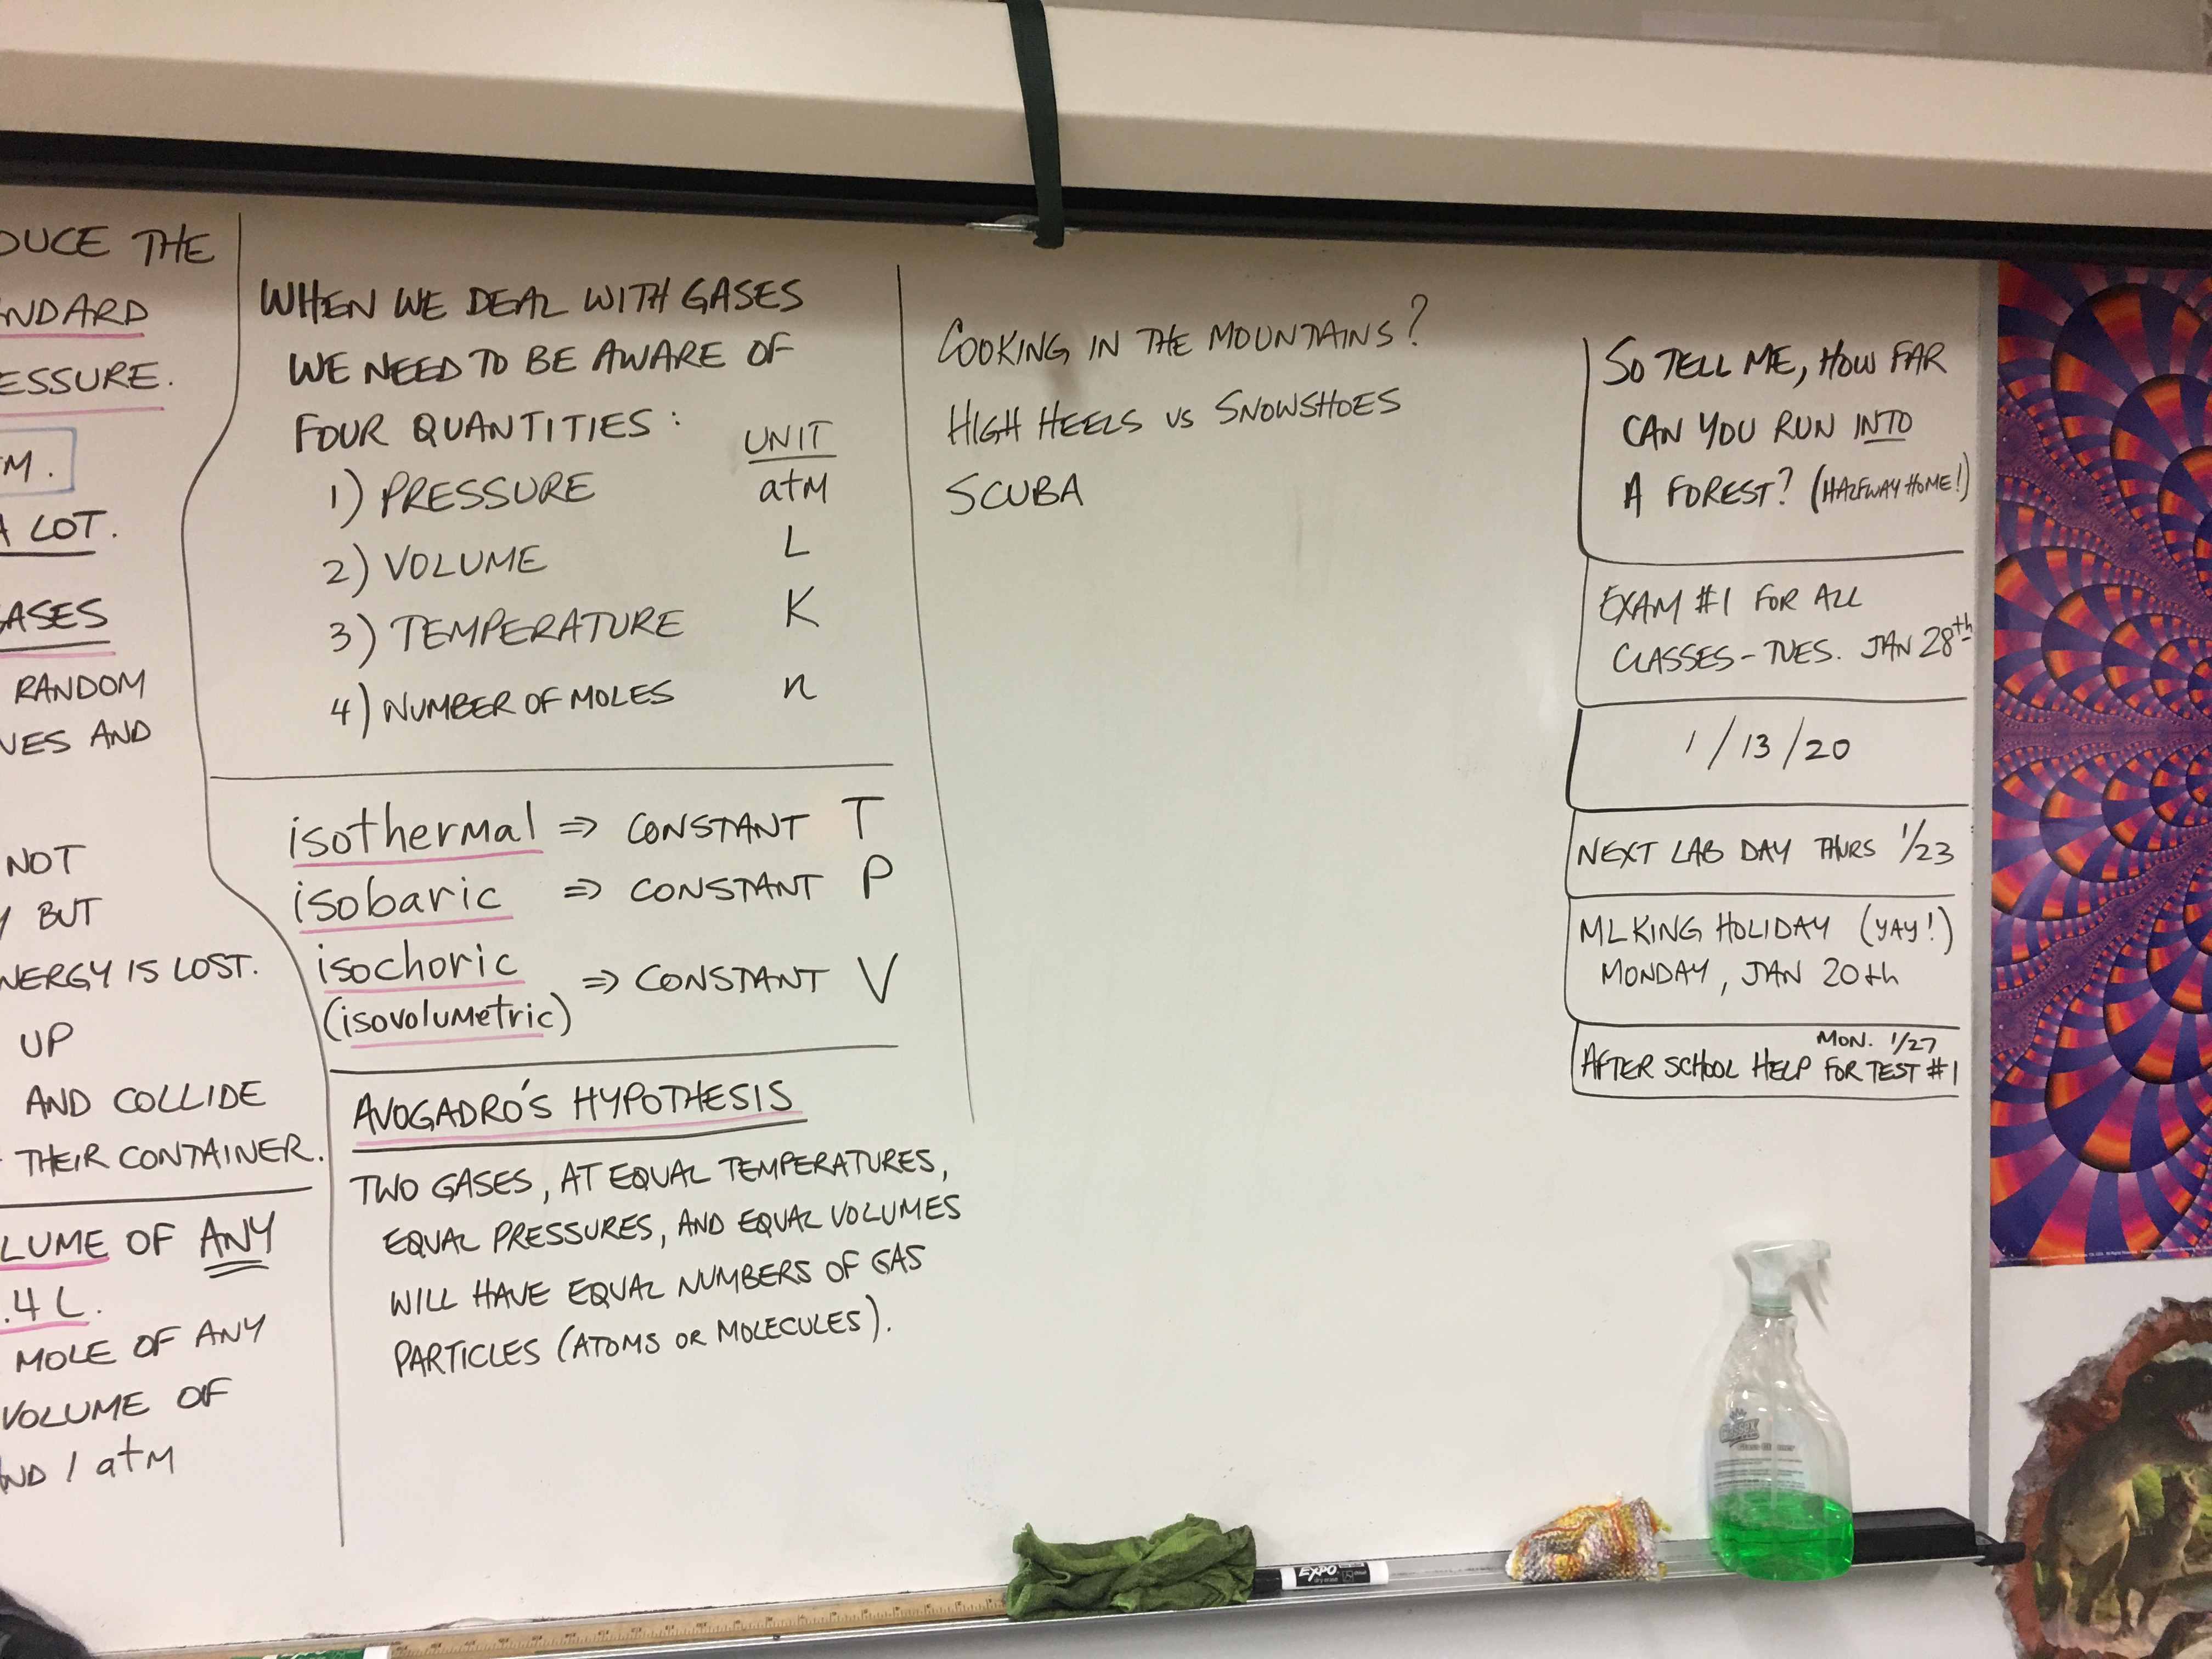 DUCE THE
NDARD
ESSURE.
M.
A LOT.
ASES
RANDOM
VES AND
NOT
Y BUT
NERGY IS LOST.
UP
AND COLLIDE
THEIR CONTAINER.
LUME OF ANY
.4 L.
MOLE OF ANY
VOLUME OF
AND 1 atm
WHEN WE DEAL WITH GASES
WE NEED TO BE AWARE OF
FOUR QUANTITIES:
UNIT
1) PRESSURE atm
2) VOLUME L
3) TEMPERATURE K
4) NUMBER OF MOLES n
isothermal ⇒ CONSTANT T
isobaric ⇒ CONSTANT P
isochoric ⇒ CONSTANT V
(isovolumetric)
AVOGADRO'S HYPOTHESIS
TWO GASES, AT EQUAL TEMPERATURES,
EQUAL PRESSURES, AND EQUAL VOLUMES
WILL HAVE EQUAL NUMBERS OF GAS
PARTICLES (ATOMS OR MOLECULES).
COOKING IN THE MOUNTAINS?
HIGH HEELS vs SNOWSHOES
SCUBA
SO TELL ME, HOW FAR
CAN YOU RUN INTO
A FOREST? (HALFWAY HOME!)
EXAM #1 FOR ALL
CLASSES - TUES. JAN 28th
1/13/20
NEXT LAB DAY THURS 1/23
ML KING HOLIDAY (YAY!)
MONDAY, JAN 20th
MON. 1/27
AFTER SCHOOL HELP FOR TEST #1
EXPO